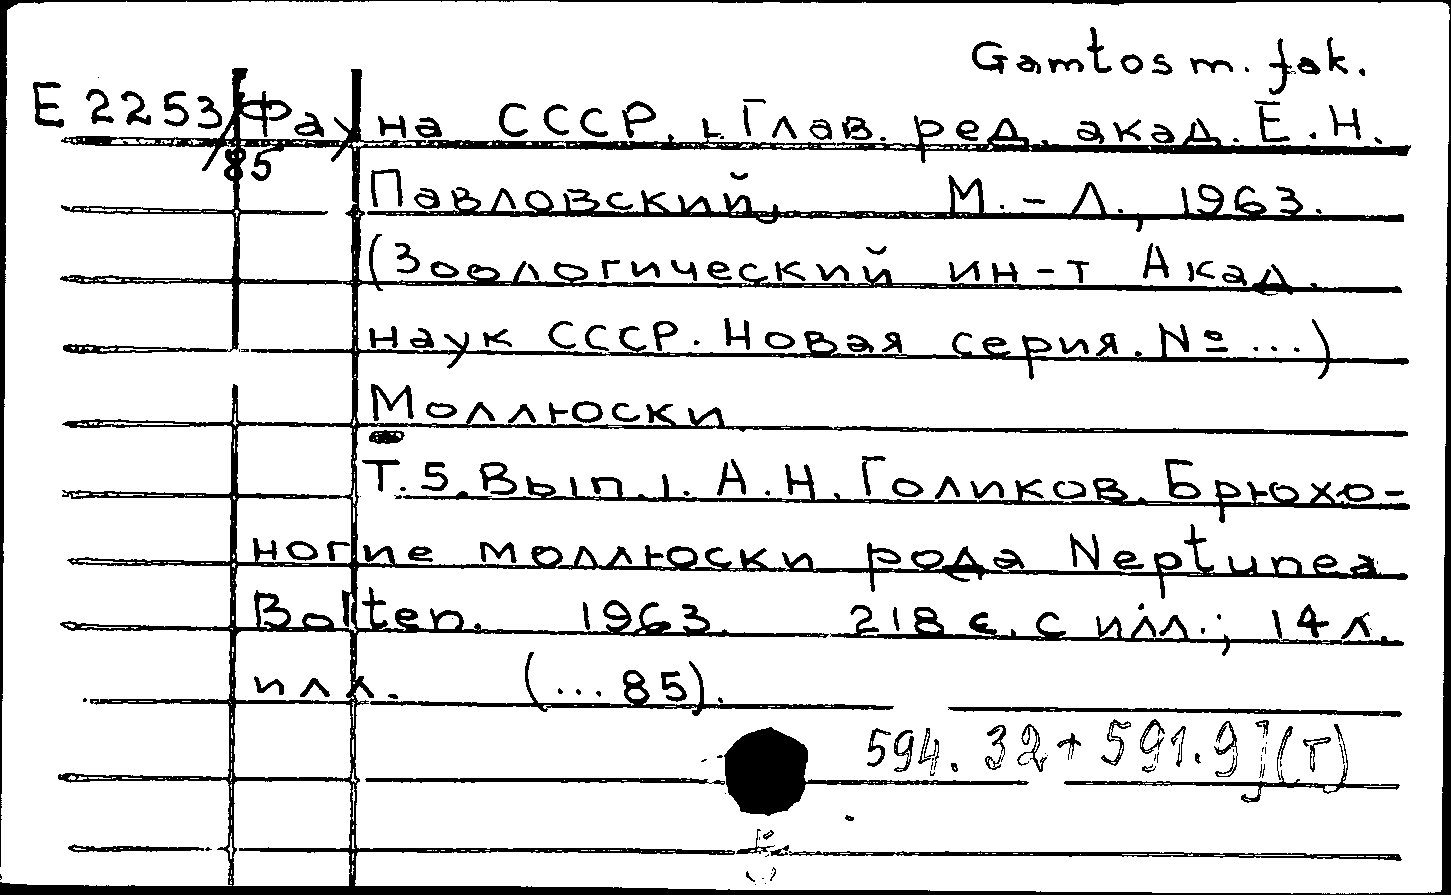 Gamtos m. fak.
E 2253/85 Фауна СССР. Глав. ред. акад. Е.Н.
Павловский, М.-Л., 1963.
(Зоологический ин-т Акад.
наук СССР. Новая серия. № ...)
Моллюски
Т.5. Вып.1. А.Н. Голиков. Брюхо-
ногие моллюски рода Neptunea
Bolten. 1963. 218 с. с илл.; 14 л.
илл. (...85).
594.32+591.9](Т)